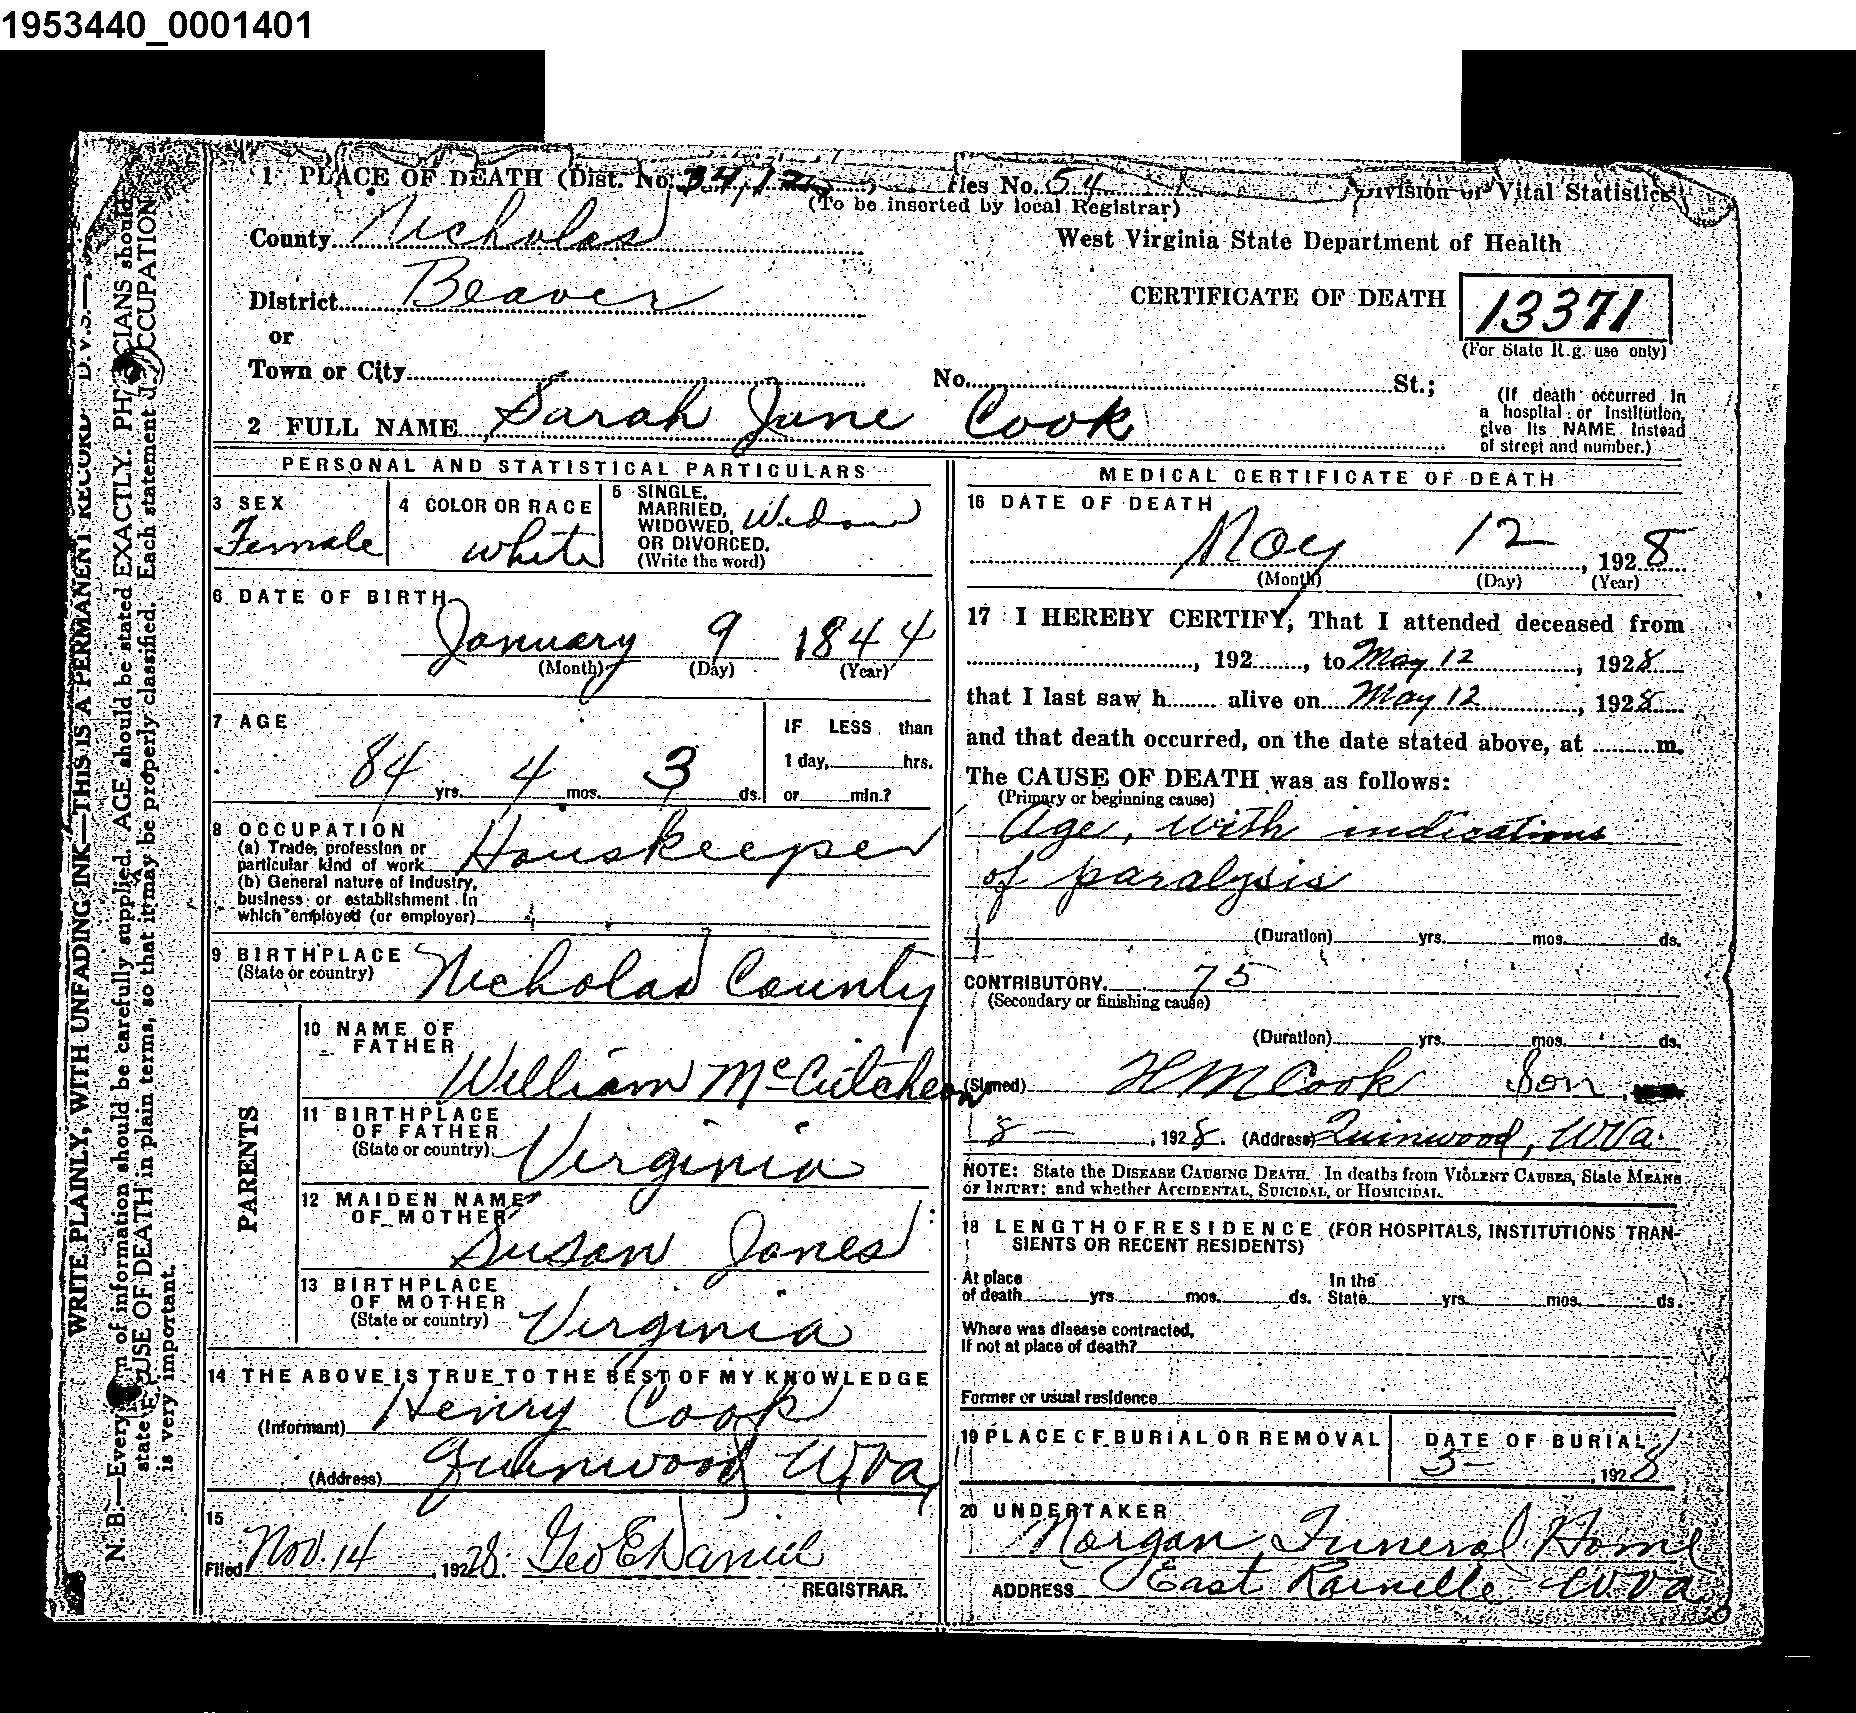 1953440_0001401
1 PLACE OF DEATH (Dist. No. ) ries No. 54 Division of Vital Statistics
(To be inserted by local Registrar)
County Nicholas West Virginia State Department of Health
District Beaver CERTIFICATE OF DEATH 13371
or (For State R.g. use only)
Town or City No. St.; (If death occurred in
a hospital or institution,
give its NAME instead
of street and number.)
2 FULL NAME Sarah Jane Cook
PERSONAL AND STATISTICAL PARTICULARS
3 SEX
Female
4 COLOR OR RACE
white
5 SINGLE,
MARRIED,
WIDOWED,
OR DIVORCED.
(Write the word)
Widow
6 DATE OF BIRTH
January 9 1844
(Month) (Day) (Year)
7 AGE
84 yrs. 4 mos. 3 ds.
IF LESS than
1 day, hrs.
or min.?
8 OCCUPATION
(a) Trade, profession or
particular kind of work Houskeeper
(b) General nature of Industry,
business or establishment in
which employed (or employer)
9 BIRTHPLACE
(State or country) Nicholas County
PARENTS
10 NAME OF
FATHER
William McCutcheon
11 BIRTHPLACE
OF FATHER
(State or country) Virginia
12 MAIDEN NAME
OF MOTHER
Susan Jones
13 BIRTHPLACE
OF MOTHER
(State or country) Virginia
14 THE ABOVE IS TRUE TO THE BEST OF MY KNOWLEDGE
(Informant) Henry Cook
(Address) Quinwood W Va
15
Filed Nov. 14, 1928. Geo E Daniel
REGISTRAR.
MEDICAL CERTIFICATE OF DEATH
16 DATE OF DEATH
May 12, 1928
(Month) (Day) (Year)
17 I HEREBY CERTIFY, That I attended deceased from
, 192 , to May 12, 1928
that I last saw h alive on May 12, 1928
and that death occurred, on the date stated above, at m.
The CAUSE OF DEATH was as follows:
(Primary or beginning cause)
Age, with indications
of paralysis
(Duration) yrs. mos. ds.
CONTRIBUTORY. 75
(Secondary or finishing cause)
(Duration) yrs. mos. ds.
(Signed) H M Cook Son
8 - , 1928. (Address) Quinwood, W Va.
NOTE: State the DISEASE CAUSING DEATH. In deaths from VIOLENT CAUSES, State MEANS
OF INJURY; and whether ACCIDENTAL, SUICIDAL, or HOMICIDAL.
18 LENGTH OF RESIDENCE (FOR HOSPITALS, INSTITUTIONS TRAN-
SIENTS OR RECENT RESIDENTS)
At place In the
of death yrs. mos. ds. State yrs. mos. ds.
Where was disease contracted,
If not at place of death?
Former or usual residence
19 PLACE OF BURIAL OR REMOVAL
DATE OF BURIAL
5- , 1928
20 UNDERTAKER
Morgan Funeral Home
ADDRESS East Rainelle W Va
WRITE PLAINLY, WITH UNFADING INK—THIS IS A PERMANENT RECORD D.V.S.—
N. B.—Every of information should be carefully supplied. AGE should be stated EXACTLY. should
state USE OF DEATH in plain terms, so that it may be properly classified. Each statement OCCUPATION
is very important.